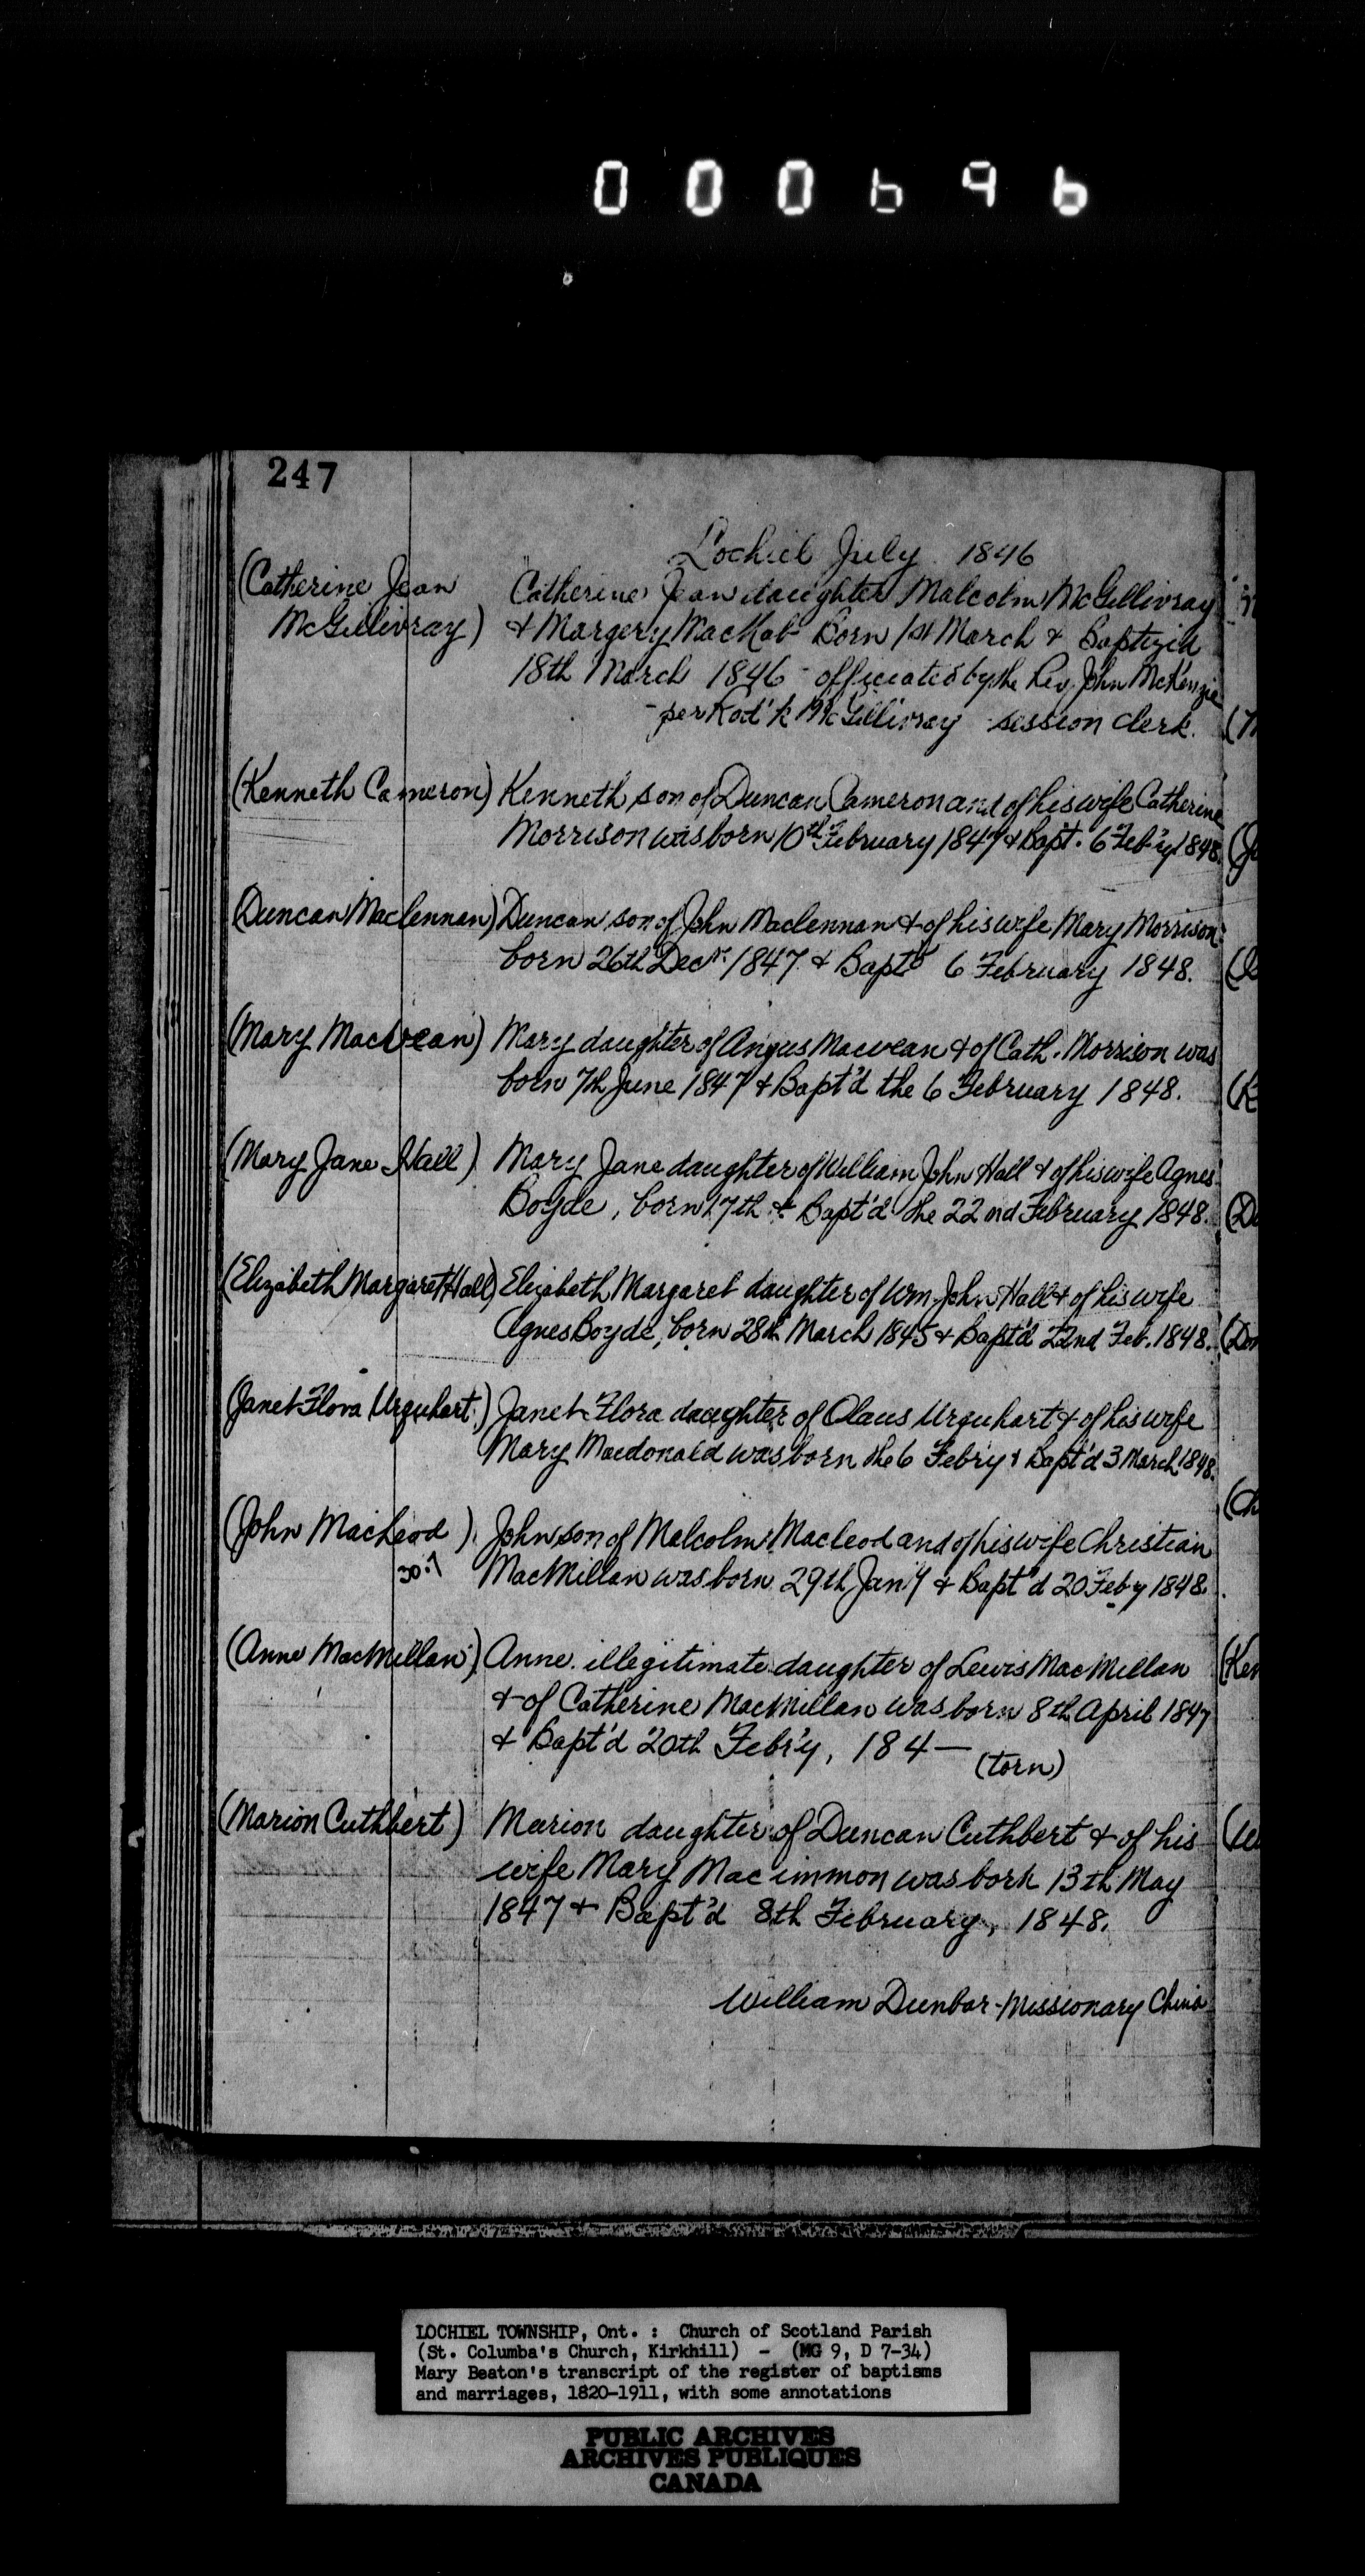 000696
247
Lochiel July 1846
(Catherine Jean
McGillivray)
Catherine Jean daughter Malcolm McGillivray
& Margery MacNab Born 1st March & Baptized
18th March 1846 - officiated by the Rev. John McKenzie
- per Rod'k McGillivray session clerk.
(Kenneth Cameron)
Kenneth son of Duncan Cameron and of his wife Catherine
Morrison was born 10th February 1847 & Bapt. 6 Feb'y 1848.
(Duncan Maclennan)
Duncan son of John Maclennan & of his wife Mary Morrison
born 26th Decr. 1847 & Baptd 6 February 1848.
(Mary MacVean)
Mary daughter of Angus Macvean & of Cath. Morrison was
born 7th June 1847 & Bapt'd the 6 February 1848.
(Mary Jane Hall)
Mary Jane daughter of William John Hall & of his wife Agnes
Boyde, born 17th & Bapt'd the 22nd February 1848.
(Elizabeth Margaret Hall)
Elizabeth Margaret daughter of Wm. John Hall & of his wife
Agnes Boyde, born 28th March 1845 & Bapt'd 22nd Feb. 1848.
(Janet Flora Urquhart.)
Janet Flora daughter of Olaus Urquhart & of his wife
Mary Macdonald was born the 6 Feb'ry & Bapt'd 3 March 1848.
(John MacLeod)
John son of Malcolm Macleod and of his wife Christian
MacMillan was born 29th Jan'y & Bapt'd 20 Feby 1848.
(Anne MacMillan)
Anne illegitimate daughter of Lewis MacMillan
& of Catherine MacMillan was born 8th April 1847
& Bapt'd 20th Feb'y, 184—
(torn)
(Marion Cuthbert)
Marion daughter of Duncan Cuthbert & of his
wife Mary Mac immon was born 13th May
1847 & Bapt'd 8th February, 1848.
William Dunbar - Missionary
LOCHIEL TOWNSHIP, Ont. : Church of Scotland Parish
(St. Columba's Church, Kirkhill) - (MG 9, D 7-34)
Mary Beaton's transcript of the register of baptisms
and marriages, 1820-1911, with some annotations
PUBLIC ARCHIVES
ARCHIVES PUBLIQUES
CANADA